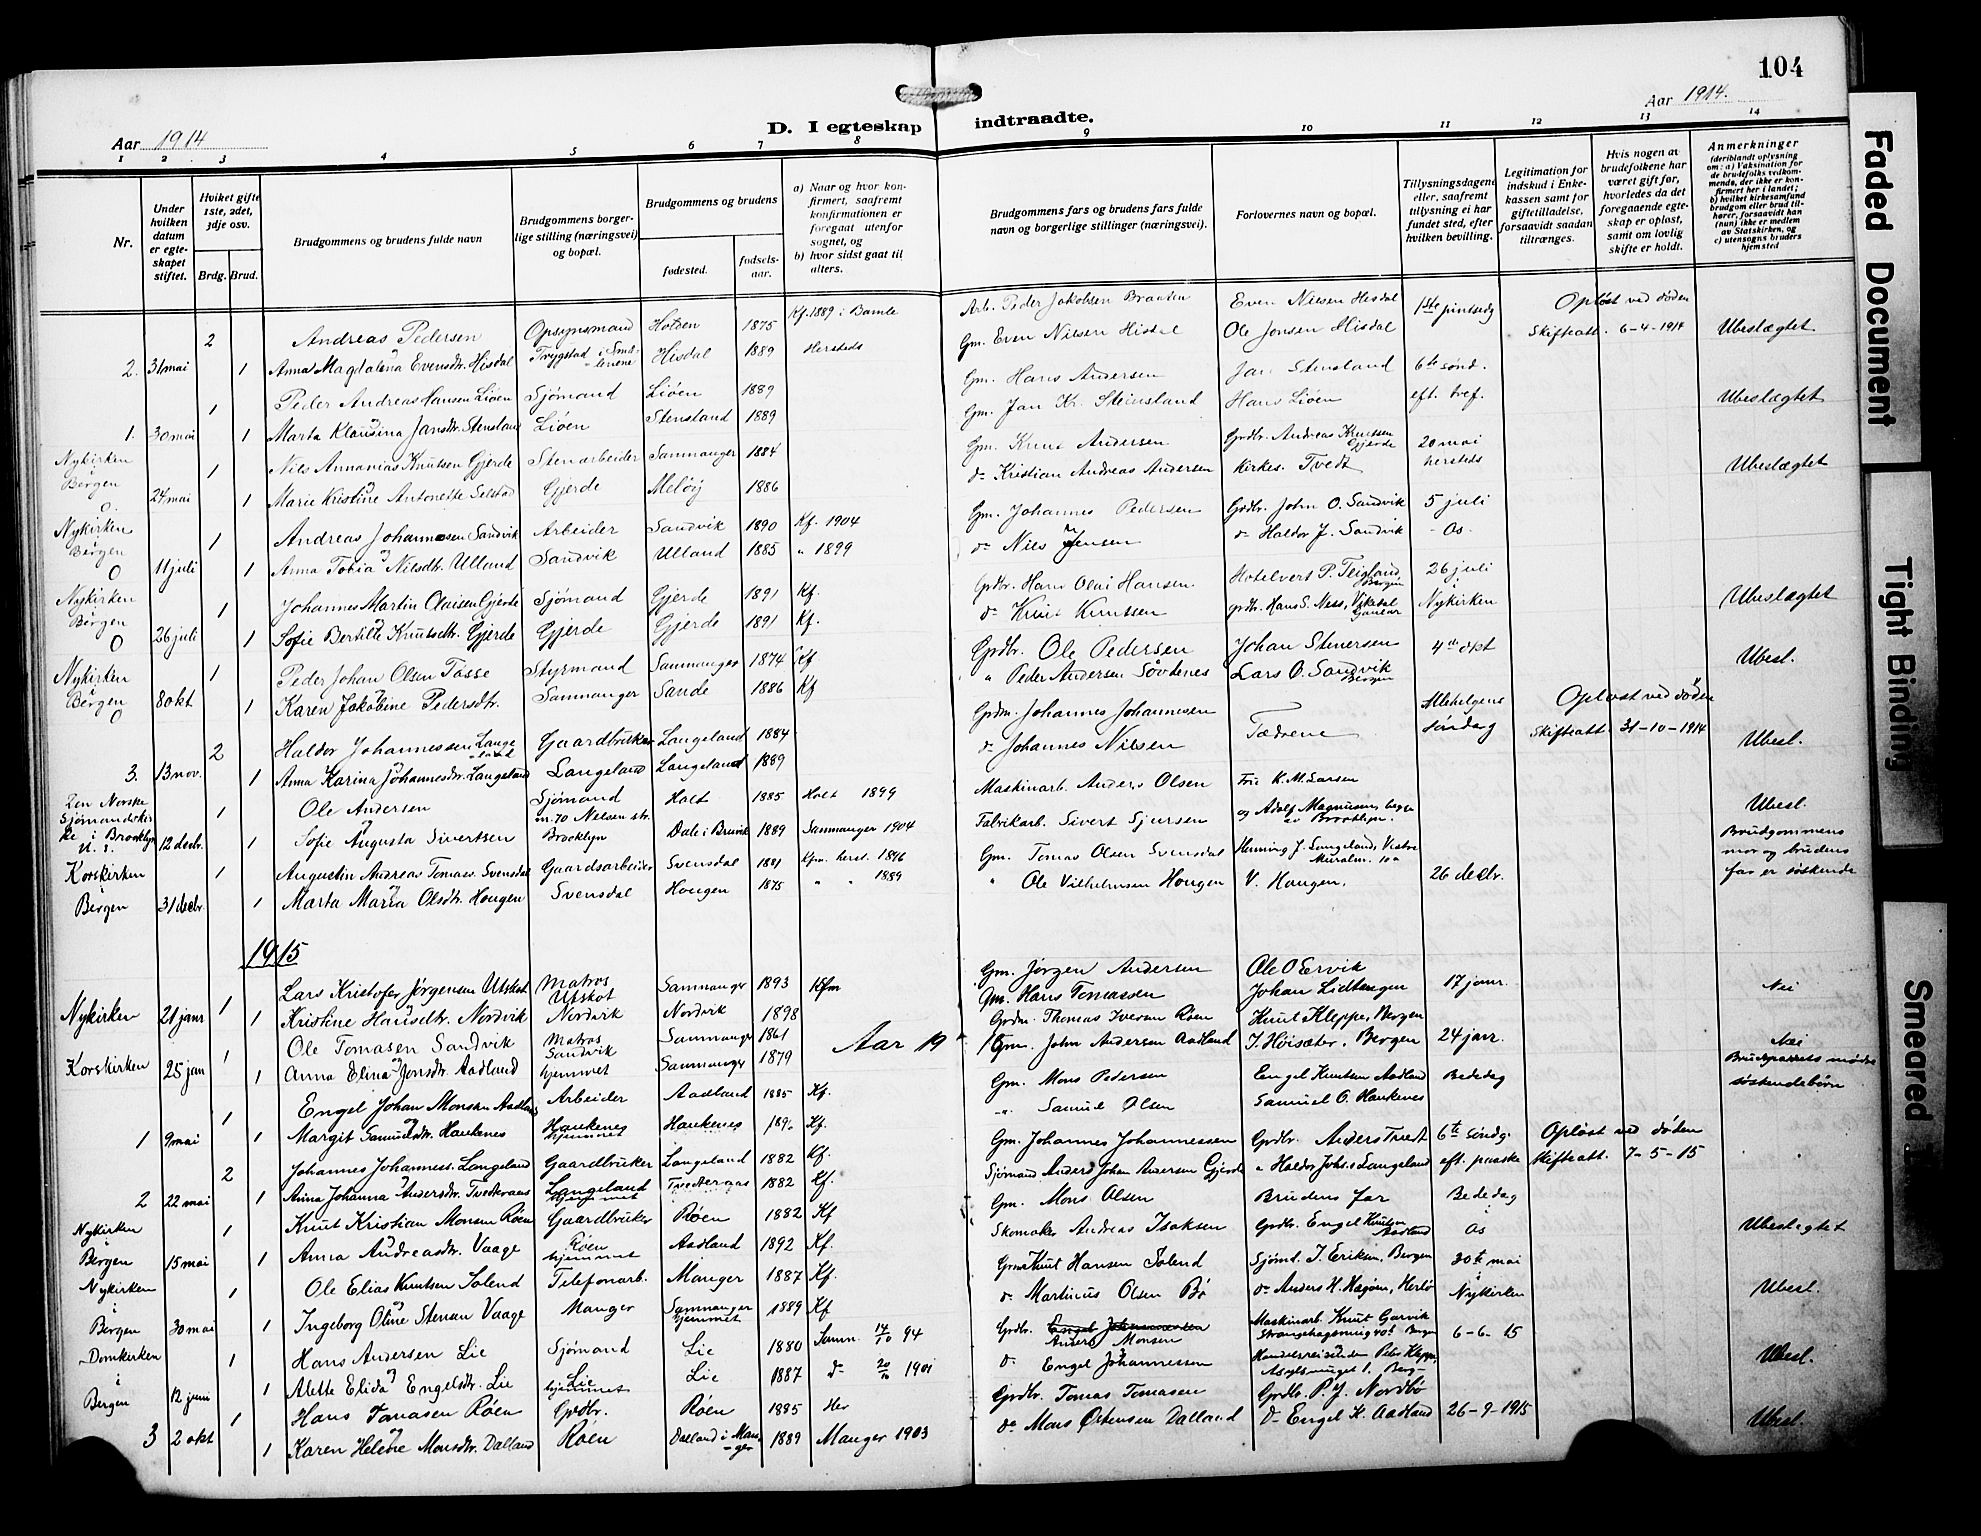 104
Aar 1914
D. I egteskap indtraadte.
Aar 1914.
1 2 3 4 5 6 7 8 9 10 11 12 13 14
Nr.
Under hvilken datum er egteskapet stiftet.
Hvilket gifte 1ste, 2det, 3dje osv.
Brdg. Brud.
Brudgommens og brudens fulde navn
Brudgommens borgerlige stilling (næringsvei) og bopæl.
Brudgommens og brudens
fødested.
fødselsaar.
a) Naar og hvor konfirmert, saafremt konfirmationen er foregaat utenfor sognet, og
b) hvor sidst gaat til alters.
Brudgommens fars og brudens fars fulde navn og borgerlige stillinger (næringsvei).
Forlovernes navn og bopæl.
Tillysningsdagene eller, saafremt tillysning ei har fundet sted, efter hvilken bevilling.
Legitimation for indskud i Enkekassen samt for giftetilladelse, forsaavidt saadan tiltrænges.
Hvis nogen av brudefolkene har været gift før, hvorledes da det foregaaende egteskap er opløst, samt om lovlig skifte er holdt.
Anmerkninger
(deriblandt oplysning om: a) Vaksination for de brudefolks vedkommende, der ikke er konfirmert her i landet;
b) hvilket kirkesamfund brudgom eller brud tilhører, forsaavidt han (hun) ikke er medlem av Statskirken, og
c) utensogns bruders hjemsted
2 Andreas Pedersen Opsynsmand Holden 1875 Kf. 1889 i Bamle Arb. Peder Jakobsen Braaten Even Nilsen Hisdal 1ste pintsedg Opløst ved døden
2. 31 mai 1 Anna Magdalena Evensdtr. Hisdal Trygstad i Hisdal 1889 Hersteds Gm. Even Nilsen Hisdal Ole Jensen Hisdal Skifteatt. 6-4-1914 Ubeslægtet
1 Peder Andreas Hansen Liøen Sjømand Liøen 1889 Gm. Hans Andersen Jan Stensland 6te sønd.
1. 30 mai 1 Marta Klausina Jansdtr. Stensland Liøen Stensland 1889 Gm. Jan Kr. Steinsland Hans Liøen eft. tref. Ubeslægtet
Nykirken i Bergen 1 Nils Annanias Knutsen Gjerde Stenarbeider Samnanger 1884 Gm. Knut Andersen Grdbr. Andreas Knutsen Gjerde 20 mai
0. 24 mai 1 Marie Kristine Antonette Selstad Gjerde Meløy 1886 do Kristian Andreas Andersen Kirkes. Tvedt hersteds Ubeslægtet
Nykirken i Bergen 1 Andreas Johannesen Sandvik Arbeider Sandvik 1890 Kf. 1904 Gm. Johannes Pedersen Grdbr. John O. Sandvik 5 juli
0 11 juli 1 Anna Tobia Nilsdtr. Ulland Sandvik Ulland 1885 " 1899 do Nils Jensen do Haldor J. Sandvik - Os
Nykirken i Bergen 1 Johannes Martin Olaisen Gjerde Sjømand Gjerde 1891 Kf. Grdbr. Hans Olai Hansen Hotelvert P. Teigland Bergen 26 juli
0 26 juli 1 Sofie Bertilde Knutsdtr. Gjerde Gjerde Gjerde 1891 Kf. do Knut Knutsen grdbr. Hans S. Ness, Nykirken Ubeslægtet
Nykirken i Bergen 1 Peder Johan Olsen Tøsse Styrmand Samnanger 1874 Kf Grdbr. Ole Pedersen Johan Stenersen 4de okt
0 8 okt 1 Karen Jakobine Pedersdtr. Samnanger Sande 1886 Kf " Peder Andersen Søvtenes Lars O. Sandvik Bergen Ubesl.
2 Haldor Johannessen Langeland Gaardbruker Langeland 1884 Grdm. Johannes Johannesen Fædrene Allehelgens søndag Opløst ved døden
3. 13 nov. 1 Anna Karina Johannesdtr. Langeland Langeland Langeland 1889 do Johannes Nilsen Skifteatt. 31-10-1914 Ubesl.
Den Norske Sjømandskirke i Brooklyn U.S. 1 Ole Andersen Sjømand Holt 1885 Holt 1899 Maskinarb. Anders Olsen K. M. Larsen
12 decbr. 1 Sofie Augusta Sivertsen 70 Nelsen str. Brooklyn Dale i Bruvik 1889 Samnanger 1904 Fabrikarb. Sivert Sjursen og Adolf Magnusen, begge av Brooklyn. Ubesl.
Korskirken 1 Augustin Andreas Tomass. Svensdal Gaardsarbeider Svensdal 1881 Kfm. herst. 1896 Gm. Tomas Olsen Svensdal Henning J. Langeland, Vestre Muralm. 10a Brudgommens mor og brudens far er søskende
Bergen 31 decbr. 1 Marta Maria Olsdtr. Hougen Svensdal Hougen 1875 " " 1889 " Ole Vilhelmsen Hougen V. Haugen. 26 decbr.
1915
1 Lars Kristofer Jørgensen Utskot Matros Utskot Samnanger 1893 Kfm Gm. Jørgen Andersen Ole O Eervik 17 janr. Nei
Nykirken 21 janr 1 Kristine Hansdtr. Nordvik Nordvik Nordvik 1898 Gm. Hans Tomassen Johan Lidtangen
1 Ole Tomasen Sandvik Matros Sandvik Samnanger 1861 Aar 19 Grdm. Thomas Iversen Røen Knut Kleppe, Bergen
Korskirken 25 jan 1 Anna Elina Jonsdtr. Aadland hjemmet Samnanger 1879 Gm. John Andersen Aadland I. Høisæter, Bergen 24 janr. Nei
1 Engel Johan Monsen Aadland Arbeider Aadland 1885 Kf. Gm. Mons Pedersen Engel Knutsen Aadland Bededag Brudeparrets mødre søskendebörn
1 9 mai 1 Margit Samuelsdtr. Haukenes Haukenes hjemmet Haukenes Kf. -"- Samuel Olsen Samuel O. Haukenes
2 Johannes Johanness. Langeland Gaardbruker Langeland 1882 Kf. Gm. Johannes Johannessen Grdbr. Anders Tvedt 6te søndg. Opløst ved døden
2 22 mai 1 Anna Johanna Andersdtr. Tvedteraas Langeland hjemmet Tvedteraas 1882 Kf. Sjømand Anders Johan Andersen Gjerde " Haldor Johs. Langeland eft. paaske Skifteatt. 7-5-15
Nykirken i 1 Knut Kristian Monsen Røen Gaardbruker Røen 1882 Kf Gm. Mons Olsen Brudens far Bededag Ubeslegtet
Bergen 15 mai 1 Anna Andreasdtr. Vaage Røen hjemmet Aadland 1892 Kf. Skomaker Andreas Isaksen Grdbr. Engel Knutsen Aadland Os
Nykirken i 1 Ole Elias Knutsen Soleud Telefonarb. Manger 1887 Kf. Grm Knut Hansen Soleud Sjømd. J. Eriksen, Bergen 30te mai Ubesl.
Bergen 30 mai 1 Ingeborg Oline Stenan Vaage Manger Samnanger hjemmet 1889 Kf do Martinus Olsen Bø do Anders H. Hagøen, Herlø Nykirken
Domkirken i 1 Hans Andersen Lie Sjømand Lie 1880 Samn. 14/10 94 Grdbr. Anders Monsen Maskinarb. Knut Garvik Strangehagensmug 40 Bergen 6-6-15
Bergen 12 juni 1 Alette Elida Engelsdtr. Lie Lie hjemmet Lie 1887 do 20/10 1901 do Engel Johannessen Handelsreisenden Peder Kleppe, Asylsmuget 1, Berg- Ubesl.
1 Hans Tomasen Røen Grdbr. Røen 1885 Her Grdbr. Tomas Tomasen Grdbr. P. J. Nordbø
3 2 okt 1 Karen Helene Monsdtr. Dalland Røen Dalland i Manger 1889 Manger 1903 do Mons Østensen Dalland do Engel K. Aadland 26-9-1915 Ubesl.
Faded Document
Tight Binding
Smeared